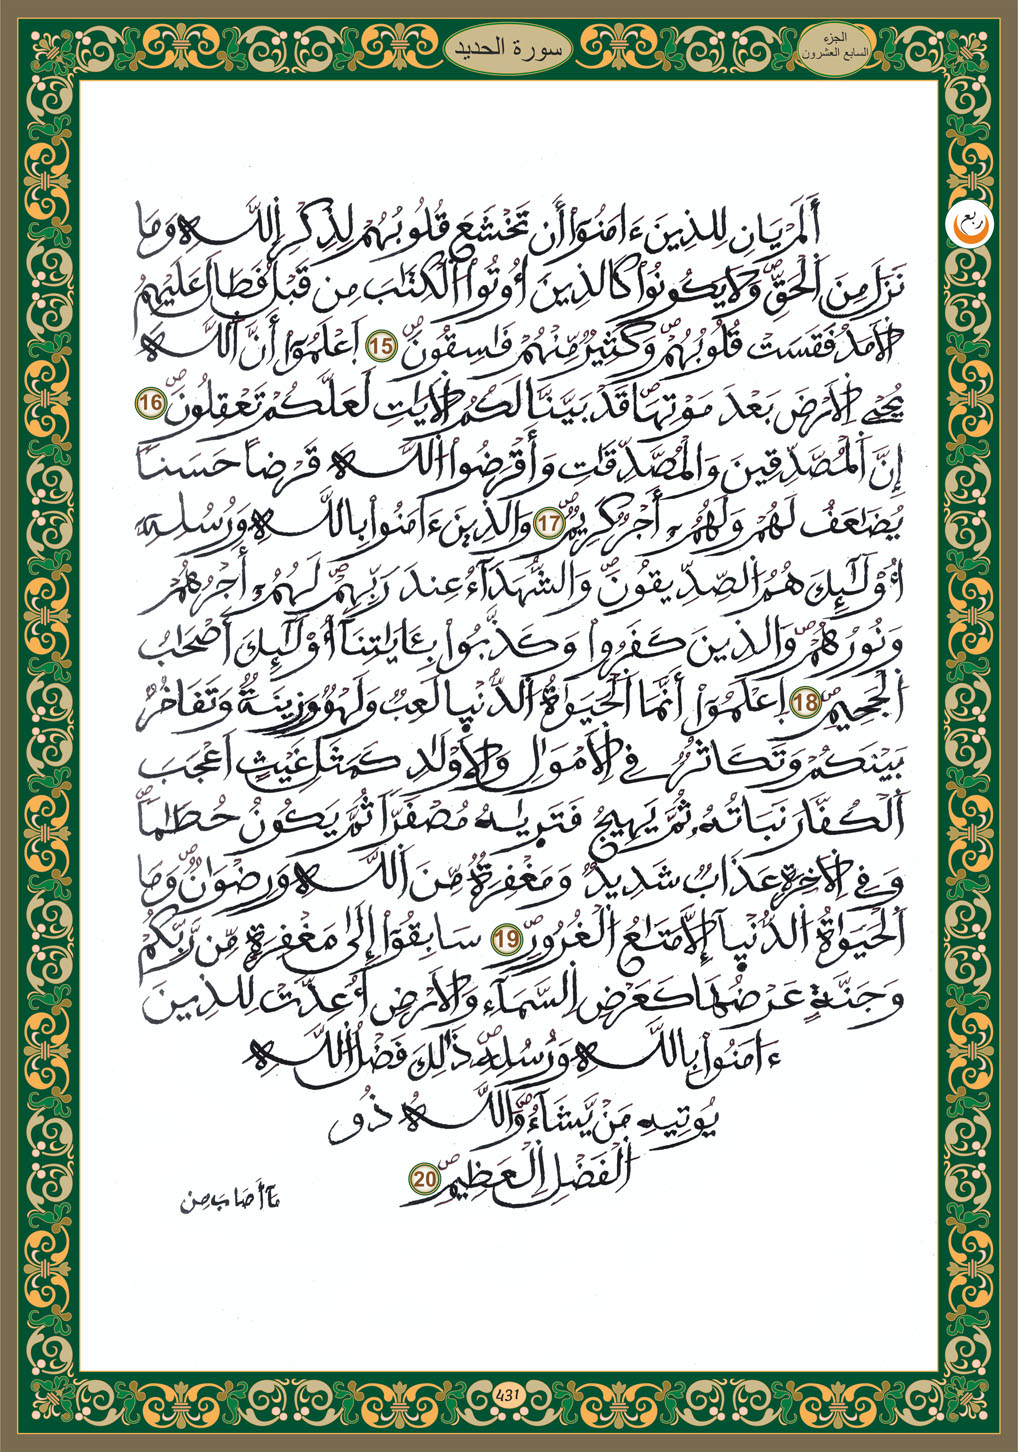 سورة الحديد
الجزء
السابع العشرون
ربع
أَلَمْ يَانِ لِلذِينَ ءَامَنُوٓاْ أَن تَخْشَعَ قُلُوبُهُمْ لِذِكْرِ اِللَّهِ وَمَا
نَزَلَ مَنَ اَلْحَقِّ وَلَا يَكُونُواْ كَالذِينَ أُوتُواْ اُلْكِتَٰبَ مِن قَبْلُ فَطَالَ عَلَيْهِمُ
اُلْأَمَدُ فَقَسَتْ قُلُوبُهُمْ وَكَثِيرٌ مِّنْهُمْ فَٰسِقُونَ 15 اَعْلَمُوٓاْ أَنَّ اَللَّهَ
يُحْيِ اِلْأَرْضَ بَعْدَ مَوْتِهَا قَدْ بَيَّنَّا لَكُمُ اُلْأَيَٰتِ لَعَلَّكُمْ تَعْقِلُونَ 16
إِنَّ اَلْمُصَّدِّقِينَ وَالْمُصَّدِّقَٰتِ وَأَقْرَضُواْ اُللَّهَ قَرْضاً حَسَناً
يُضَٰعَفُ لَهُمْ وَلَهُمُۥٓ أَجْرٌ كَرِيمٌ 17 وَالذِينَ ءَامَنُواْ بِاللَّهِ وَرُسُلِهِۦٓ
أُوْلَٰٓئِكَ هُمُ اُلصِّدِّيقُونَ وَالشُّهَدَآءُ عِندَ رَبِّهِمْ لَهُمُۥٓ أَجْرُهُمْ
وَنُورُهُمْ وَالذِينَ كَفَرُواْ وَكَذَّبُواْ بِـَٔايَٰتِنَآ أُوْلَٰٓئِكَ أَصْحَٰبُ
اُلْجَحِيمِ 18 اِعْلَمُوٓاْ أَنَّمَا اَلْحَيَوٰةُ اُلدُّنْيِا لَعِبٌ وَلَهْوٌ وَزِينَةٌ وَتَفَاخُرٌ
بَيْنَكُمْ وَتَكَاثُرٌ فِي اِلْأَمْوَٰلِ وَالْأَوْلَٰدِ كَمَثَلِ غَيْثٍ اَعْجَبَ
اَلْكُفَّارَ نَبَاتُهُۥ ثُمَّ يَهِيجُ فَتَرِيٰهُ مُصْفَرّاً ثُمَّ يَكُونُ حُطَٰماً
وَفِي اِلْأَخِرَةِ عَذَابٌ شَدِيدٌ وَمَغْفِرَةٌ مِّنَ اَللَّهِ وَرِضْوَٰنٌ وَمَا
اَلْحَيَوٰةُ اُلدُّنْيِآ إِلَّا مَتَٰعُ اُلْغُرُورِ 19 سَابِقُوٓاْ إِلَىٰ مَغْفِرَةٍ مِّن رَّبِّكُمْ
وَجَنَّةٍ عَرْضُهَا كَعَرْضِ اِلسَّمَآءِ وَالْأَرْضِ أُعِدَّتْ لِلذِينَ
ءَامَنُواْ بِاللَّهِ وَرُسُلِهِۦ ذَٰلِكَ فَضْلُ اُللَّهِ
يُوتِيهِ مَنْ يَّشَآءُ وَاللَّهُ ذُو
اُلْفَضْلِ اِلْعَظِيمِ 20
مَآ أَصَابَ مِن
431